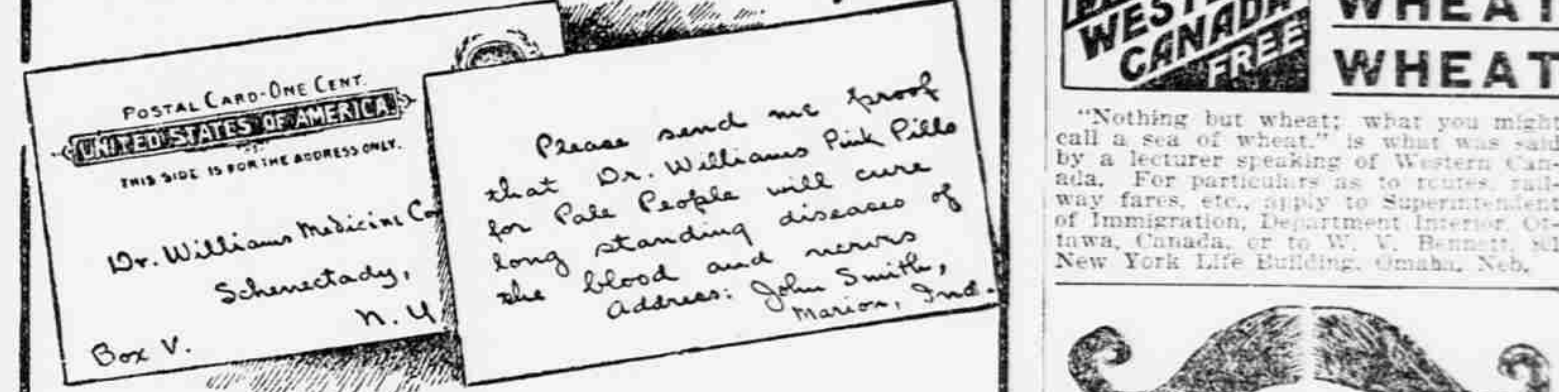 POSTAL CARD-ONE CENT.
UNITED STATES OF AMERICA
THIS SIDE IS FOR THE ADDRESS ONLY.
Dr. Williams Medicine Co
Schenectady,
N. Y
Box V.
Please send me proof
that Dr. Williams Pink Pills
for Pale People will cure
long standing diseases of
the blood and nerves
Address: John Smith,
Marion, Ind.
WESTERN
CANADA
FREE
WHEAT
WHEAT
"Nothing but wheat; what you might
call a sea of wheat," is what was said
by a lecturer speaking of Western Can-
ada. For particulars as to routes, rail-
way fares, etc., apply to Superintendent
of Immigration, Department Interior, Ot-
tawa, Canada, or to W. V. Bennett,
New York Life Building, Omaha, Neb.